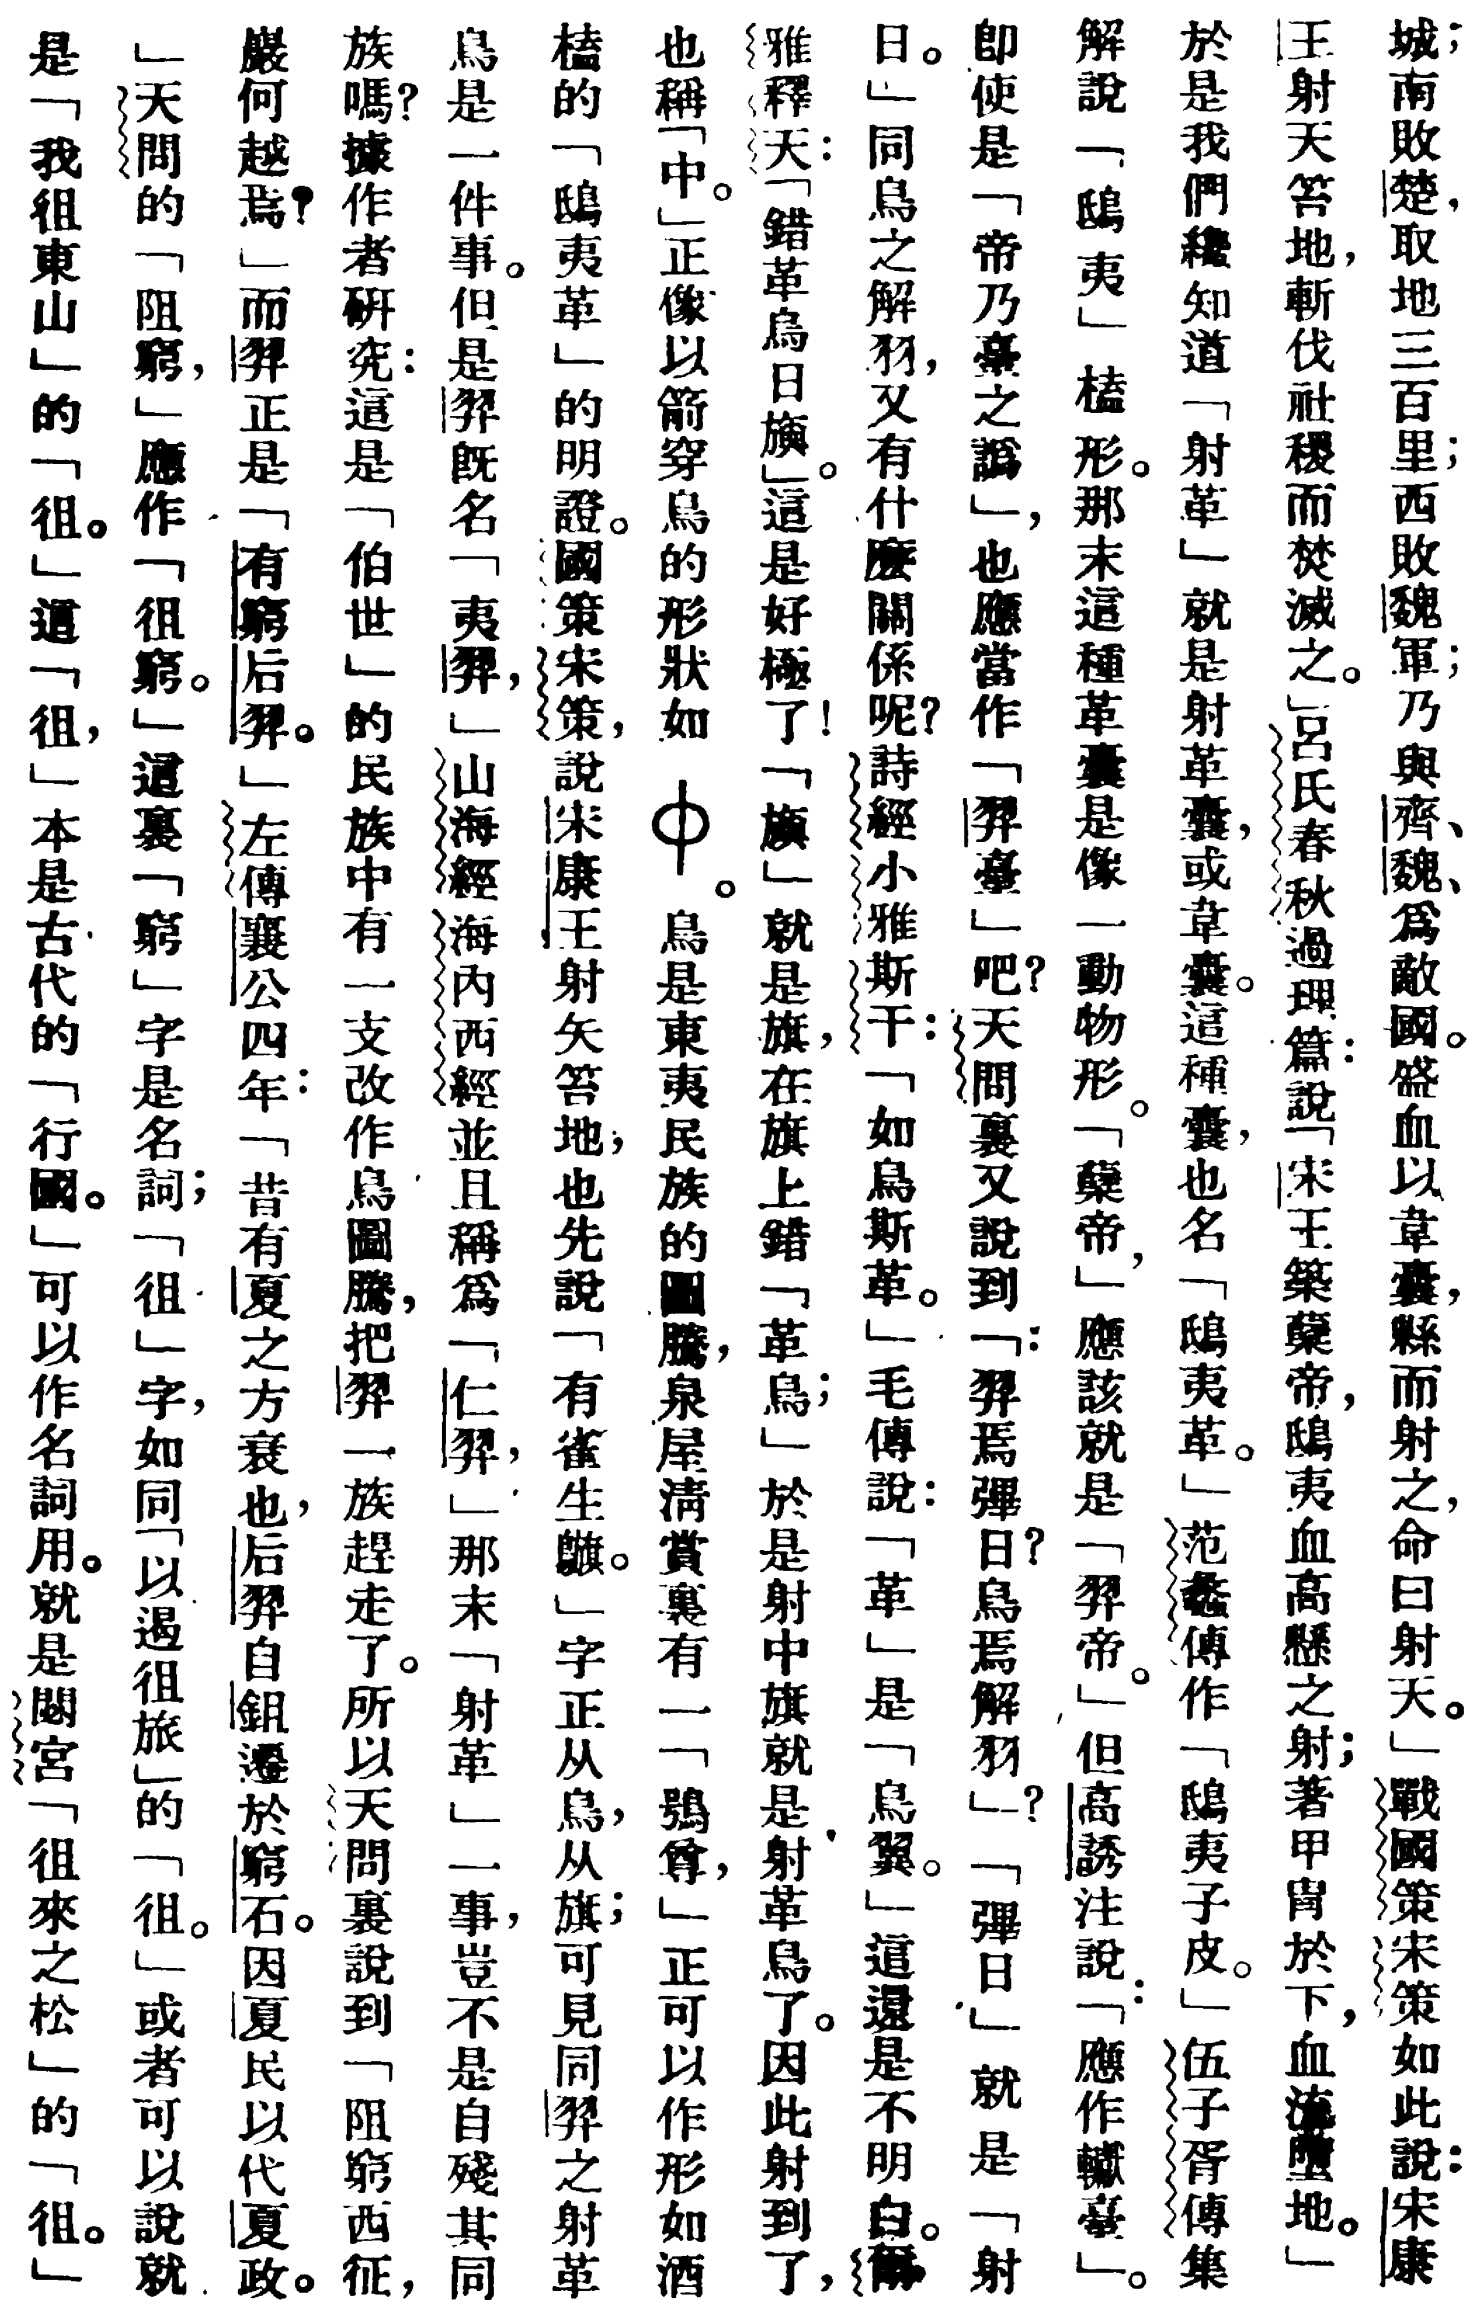 城；南敗楚，取地三百里；西敗魏軍；乃與齊、魏、爲敵國。盛血以韋囊，縣而射之，命曰射天。」戰國策宋策如此說：宋康
王射天笞地，斬伐社稷而焚滅之。」呂氏春秋過理篇：說「宋王築蘖帝，鴟夷血高懸之射；著甲冑於下，血流墮地。」
於是我們纔知道「射革」就是射革囊，或韋囊。這種囊，也名「鴟夷革。」范蠡傳作「鴟夷子皮。」伍子胥傳集
解說「鴟夷」榼形。那末這種革囊是像一動物形。「蘖帝，」應該就是「羿帝。」但高誘注說：「應作轞臺」。
卽使是「帝乃臺之譌」，也應當作「羿臺」吧？天問裏又說到「：羿焉彈日？烏焉解羽」？「彈日」就是「射
日。」同鳥之解羽，又有什麼關係呢？詩經小雅斯干：「如鳥斯革。」毛傳說：「革」是「鳥翼。」這還是不明白。爾
雅釋天：「錯革鳥曰旟」。這是好極了！「旟」就是旗，在旗上錯「革鳥；」於是射中旗就是射革鳥了。因此射到了，
也稱「中。」正像以箭穿鳥的形狀如 。鳥是東夷民族的圖騰，泉屋清賞裏有一「鴞尊，」正可以作形如酒
榼的「鴟夷革」的明證。國策宋策，說宋康王射矢笞地，也先說「有雀生。」字正从鳥，从旗；可見同羿之射革
鳥是一件事。但是羿旣名「夷羿，」山海經海內西經並且稱爲「仁羿，」那末「射革」一事，豈不是自殘其同
族嗎？據作者研究：這是「伯世」的民族中有一支改作鳥圖騰，把羿一族趕走了。所以天問裏說到「阻窮西征，
巖何越焉？」而羿正是「有窮后羿。」左傳襄公四年：「昔有夏之方衰也，后羿自鉏遷於窮石。因夏民以代夏政。
」天問的「阻窮，」應作「徂窮。」這裏「窮」字是名詞；「徂」字，如同「以遏徂旅」的「徂。」或者可以說就
是「我徂東山」的「徂。」這「徂，」本是古代的「行國。」可以作名詞用。就是閟宮「徂來之松」的「徂。」